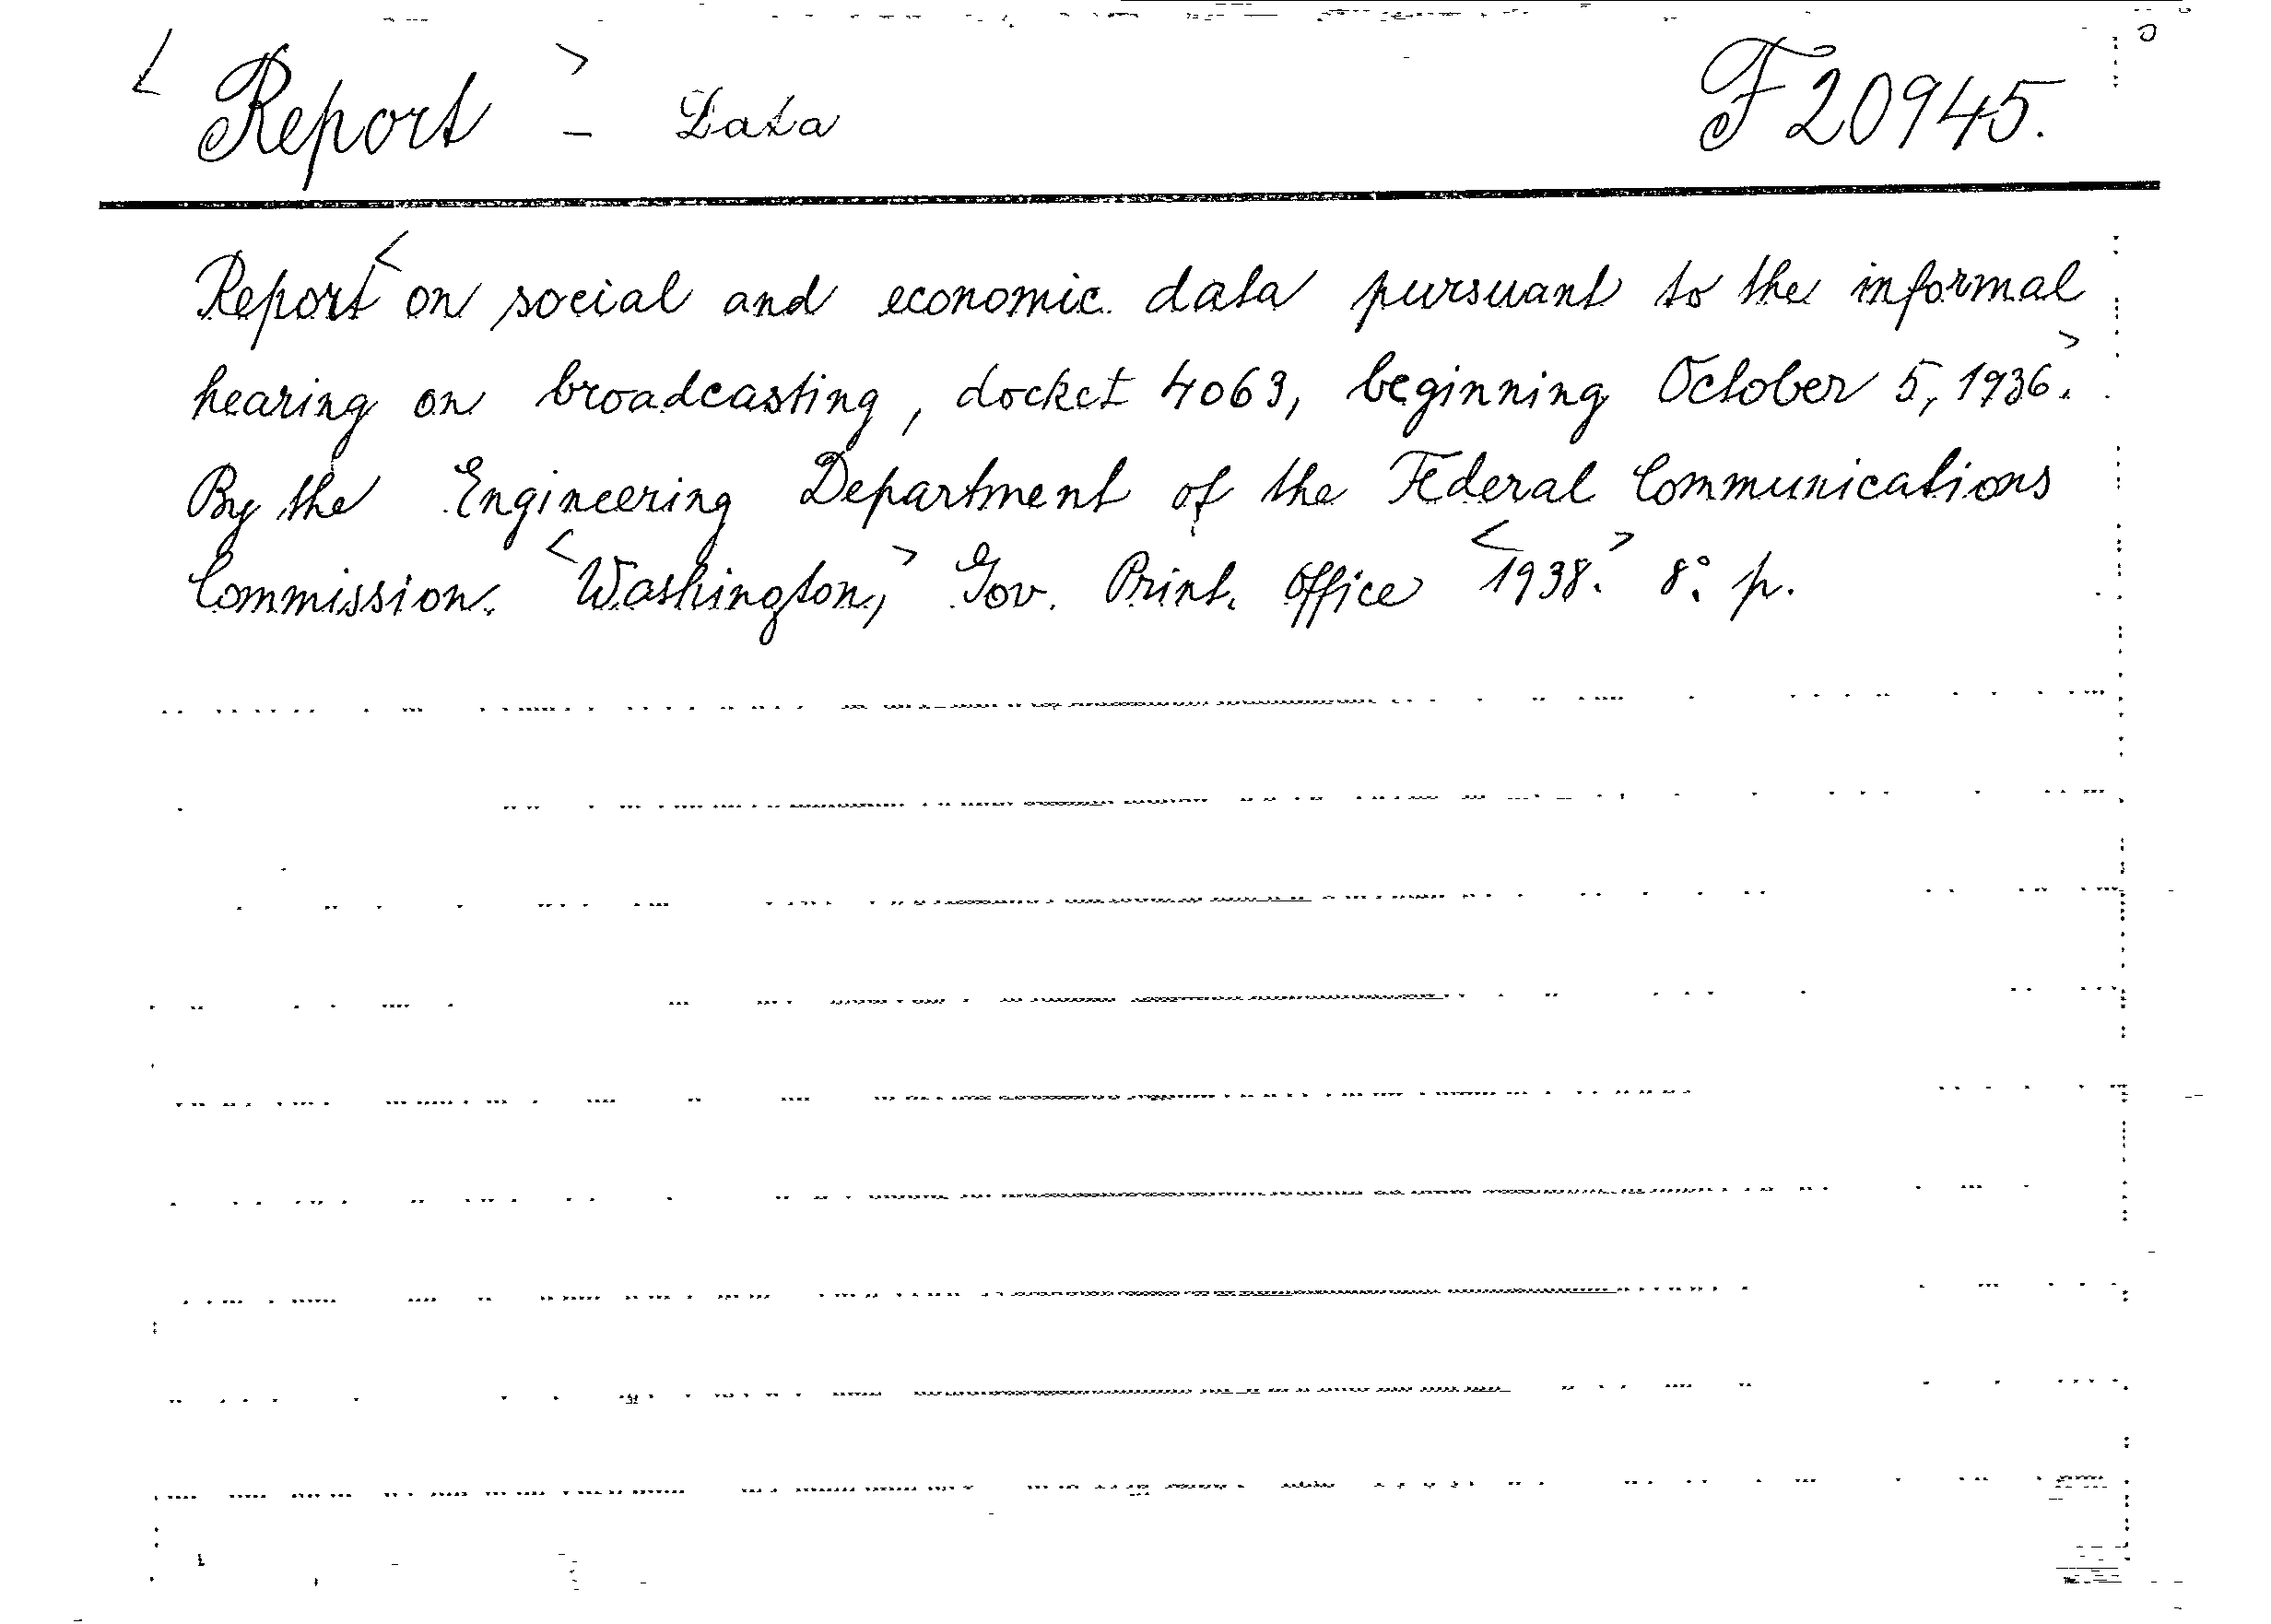 < Report > - Data F 20945.
Report < on social and economic data pursuant to the informal
hearing on broadcasting, docket 4063, beginning October 5, 1936. >
By the Engineering Department of the Federal Communications
Commission. < Washington, > Gov. Print. Office < 1938. > 8°. p.